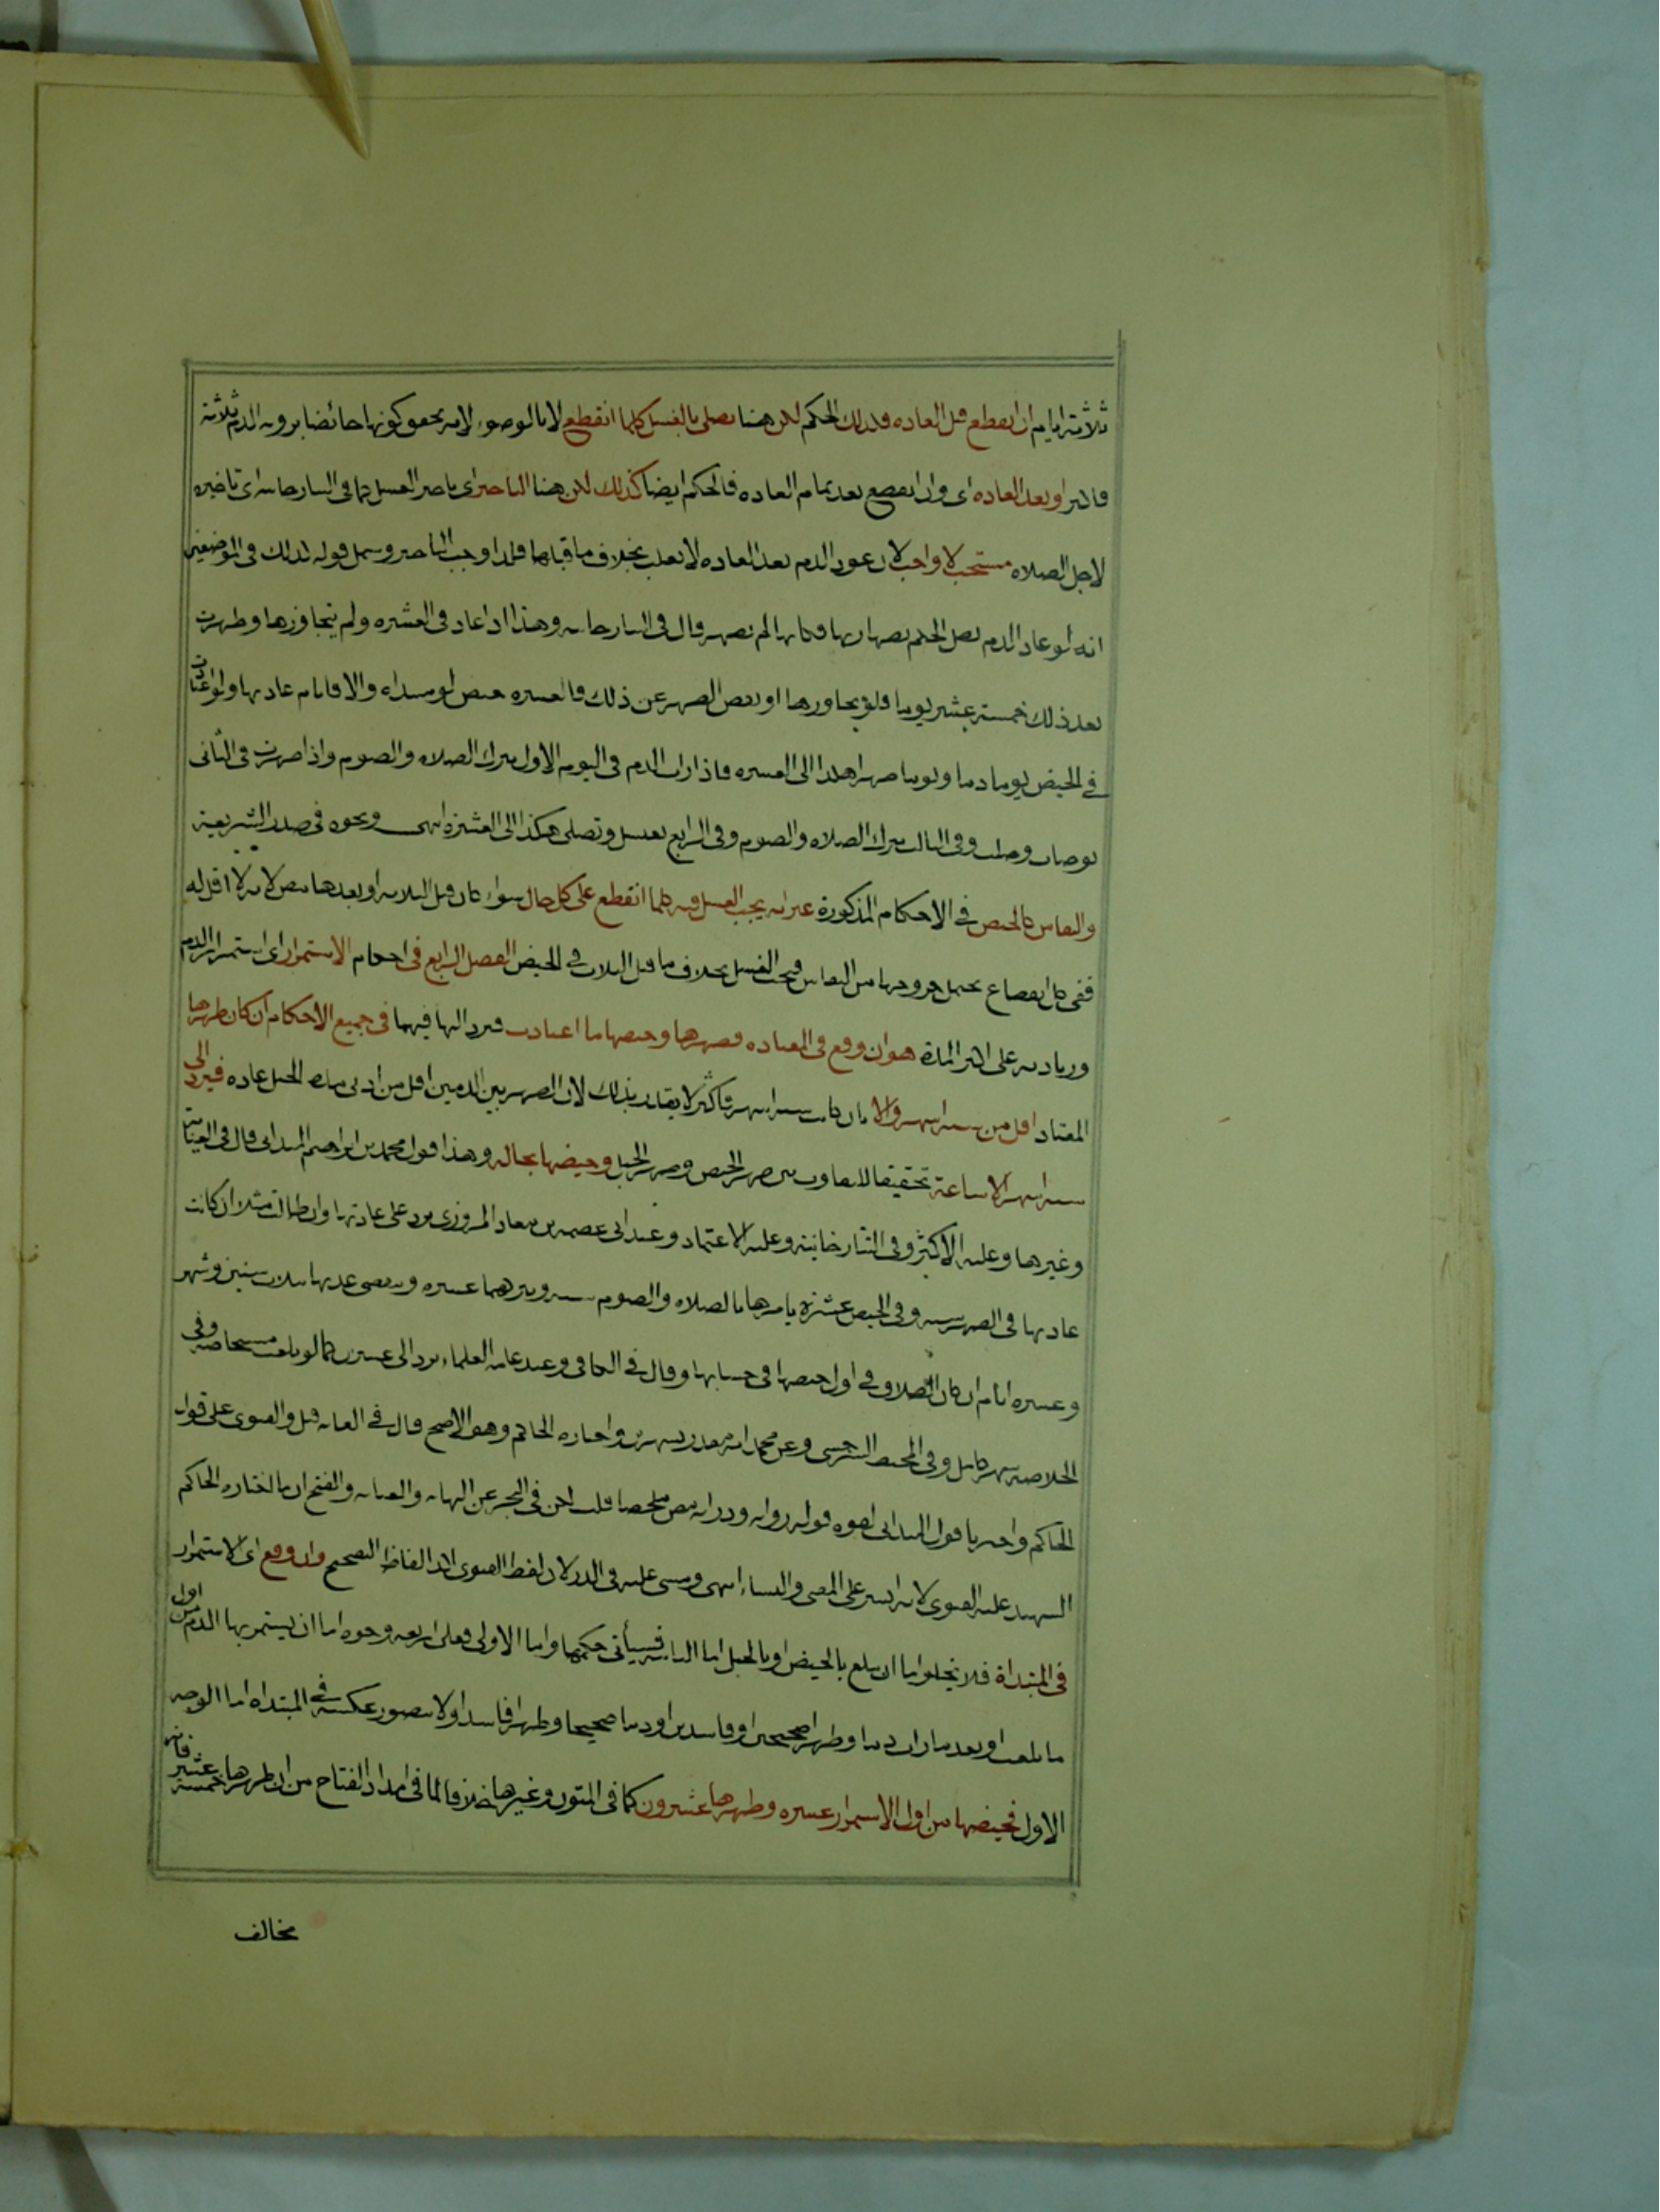 ثلاثة ايام ان انقطع قبل العادة فكذلك الحكم لكن هنا تصلي بالغسل كلما انقطع لا بالوضوء لانه تحقق كونها حائضا برؤية الدم ثلاثة
فاكثر او بعد العادة اى وان انقطع بعد تمام العادة فالحكم ايضا كذلك لكن هنا التاخير اى تاخير الغسل كما في التتارخانية اى تاخيره
لاجل الصلاة مستحب لا واجب لان عود الدم بعد العادة لا يغلب بخلاف ما قبلها فلذا وجب التاخير وشمل قوله كذلك في الموضعين
انه لو عاد الدم بطل الحكم بطهارتها فكانها لم تطهر قال في التتارخانية وهذا اذا عاد في العشرة ولم يتجاوزها وطهرت
بعد ذلك خمسة عشر يوما فلو تجاوزها او نقص الطهر عن ذلك فالعشرة حيض لو مبتداة والا فايام عادتها ولو اعتادت
في الحيض يوما دما ويوما طهرا هكذا الى العشرة فاذا رات الدم في اليوم الاول تترك الصلاة والصوم واذا طهرت في الثاني
توضات وصلت وفي الثالث تترك الصلاة والصوم وفي الرابع تغتسل وتصلي هكذا الى العشرة انتهى ونحوه في صدر الشريعة
والنفاس كالحيض في الاحكام المذكورة غير انه يجب الغسل فيه كلما انقطع على كل حال سواء كان قبل الثلاثة او بعدها لانه لا اقل له
ففي كل انقطاع يحتمل خروجها من النفاس فيجب الغسل بخلاف ما قبل الثلاث في الحيض الفصل الرابع في احكام الاستمرار اى استمرار الدم
وزيادته على اكثر المدة هو ان وقع في المعتادة فطهرها وحيضها ما اعتادت فترد اليها فيهما في جميع الاحكام ان كان طهرها
المعتاد اقل من ستة اشهر والا بان كان ستة اشهر فاكثر لا يقدر بذلك لان الطهر بين الدمين اقل من ادنى مدة الحبل عادة فيرد الى
ستة اشهر الا ساعة تحقيقا للتفاوت بين طهر الحيض وطهر الحبل وحيضها بحاله وهذا قول محمد بن ابراهيم الميداني قال في العناية
وغيرها وعليه الاكثر وفي التتارخانية وعليه الاعتماد وعند ابي عصمة بن معاذ المروزي ترد على عادتها وان طالت مثلا ان كانت
عادتها في الطهر سنة وفي الحيض عشرة يامرها بالصلاة والصوم سنة وبتركهما عشرة وتنقضي عدتها بثلاث سنين وشهر
وعشرة ايام ان كان الطلاق في اول حيضها في حسابها وقال في الكافي وعند عامة العلماء ترد الى عشرين كما لو بلغت مستحاضة وفي
الخلاصة شهر كامل وفي المحيط السرخسي وعن محمد انه مقدر بشهرين واختاره الحاكم وهو الاصح قال في الغاية قيل والفتوى على قول
الحاكم واخترنا قول الميداني لقوة قوله رواية ودراية ملخصا قلت لكن في البحر عن النهاية والعناية والفتح ان ما اختاره الحاكم
الشهيد عليه الفتوى لانه ايسر على المفتي والنساء انتهى ومشى عليه في الدر لان لفظ الفتوى آكد الفاظ التصحيح وان وقع اى الاستمرار
في المبتداة فلا يخلو اما ان تبلغ بالحيض او بالحبل اما الثانية فسيأتي حكمها واما الاولى فعلى اربعة وجوه اما ان يستمر بها الدم من اول
ما بلغت او بعد ما رات دما وطهرا صحيحين او فاسدين او دما صحيحا وطهرا فاسدا ولا يتصور عكسه في المبتداة اما الوجه
الاول فحيضها من اول الاستمرار عشرة وطهرها عشرون كما في المتون وغيرها خلافا لما في امداد الفتاح من ان طهرها خمسة عشر فانه
مخالف